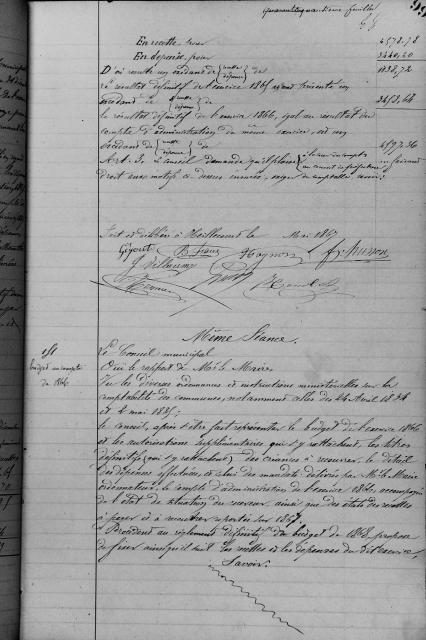 En recette, pour 4578,78
En dépense, pour 3440,20
D'où résulte un excédant de { recette dépense } de 1138,72
le résultat définitif de l'exercice 1865 ayant présenté un
excédant de { recette dépense } de 3458,64
le résultat définitif de l'exercice 1866, égal au résultat du
compte d'administration du même exercice, est un
excédant de { recette dépense } de 4597,36
Art. 3. Le Conseil demande qu'il plaise
droit aux motifs ci-dessus énoncés, exiger du comptable, savoir:
Fait et délibéré à Heillecourt le Mai 1867
Même Séance.
Budget au compte
de 1866
Le Conseil municipal
Ouï le rapport de M. le Maire
Vu les diverses ordonnances et instructions ministérielles sur la
comptabilité des communes, notamment celles des 24 Avril 1834
et 2 mai 1835;
Le Conseil, après s'être fait représenter le budget de l'exercice 1866
et les autorisations supplémentaires qui s'y rattachent, les titres
définitifs (qui s'y rattachent) des créances à recouvrer, le détail
des dépenses effectuées, et celui des mandats délivrés par M. le Maire
ordonnateur, le compte d'administration de l'exercice 1866, accompagné
de l'état de situation du receveur, ainsi que des états des restes
à payer et à recouvrer reportés sur 1867
Procédant au règlement définitif du budget de 1866, propose
de fixer ainsi qu'il suit les recettes et les dépenses du dit exercice,
Savoir: